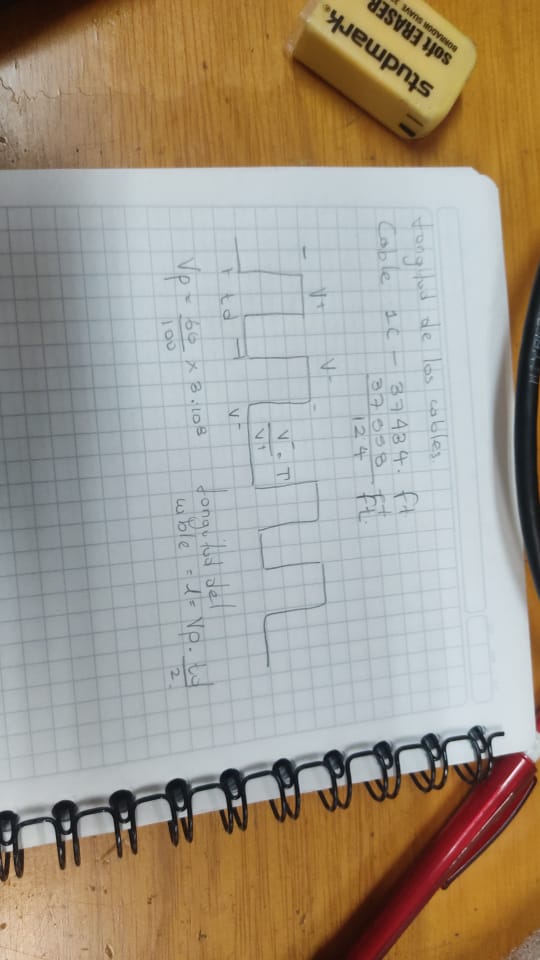 studmark
soft ERASER
BORRADOR SUAVE
Longitud de los cables
Cable 1C - 37434. ft
37558 ft.
124
V+
V-
td
V-
V- = T
V+
Vp = 66 x 3.108
100
Longitud del
cable = l = Vp. td
2.